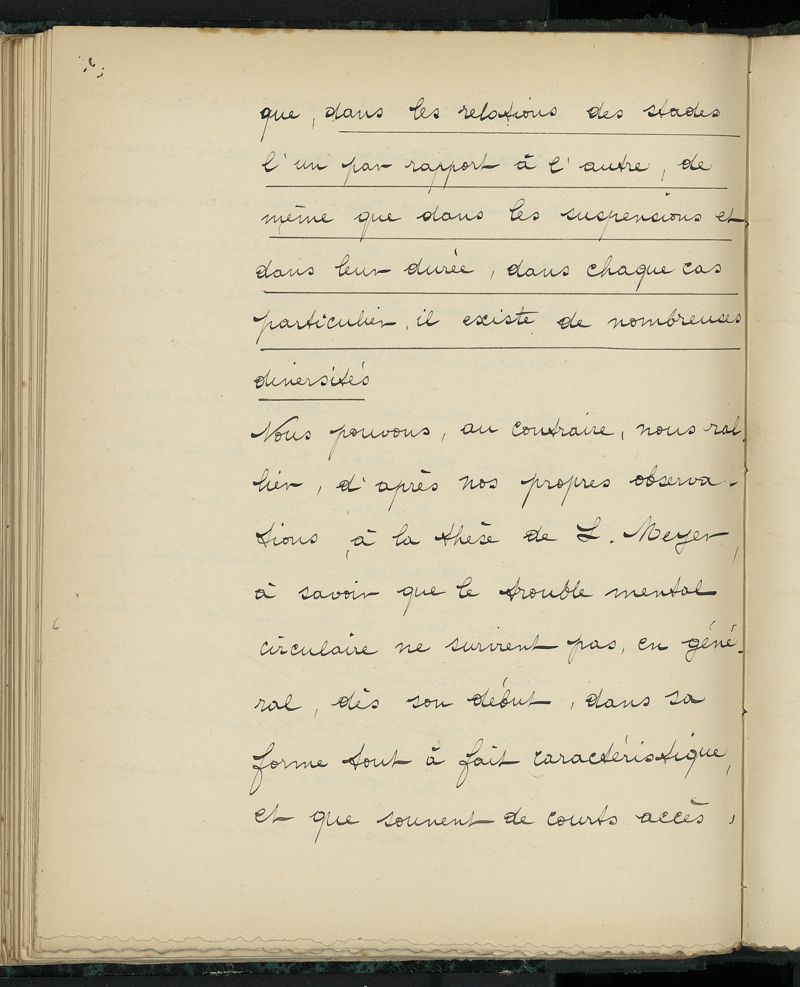 que, dans les relations des stades
l'un par rapport à l'autre, de
même que dans les suspensions et
dans leur durée, dans chaque cas
particulier, il existe de nombreuses
diversités
Nous pouvons, au contraire, nous ral-
lier, d'après nos propres observa-
tions, à la thèse de L. Meyer,
à savoir que le trouble mental
circulaire ne survient pas, en géné-
ral, dès son début, dans sa
forme tout à fait caractéristique,
et que souvent de courts accès,